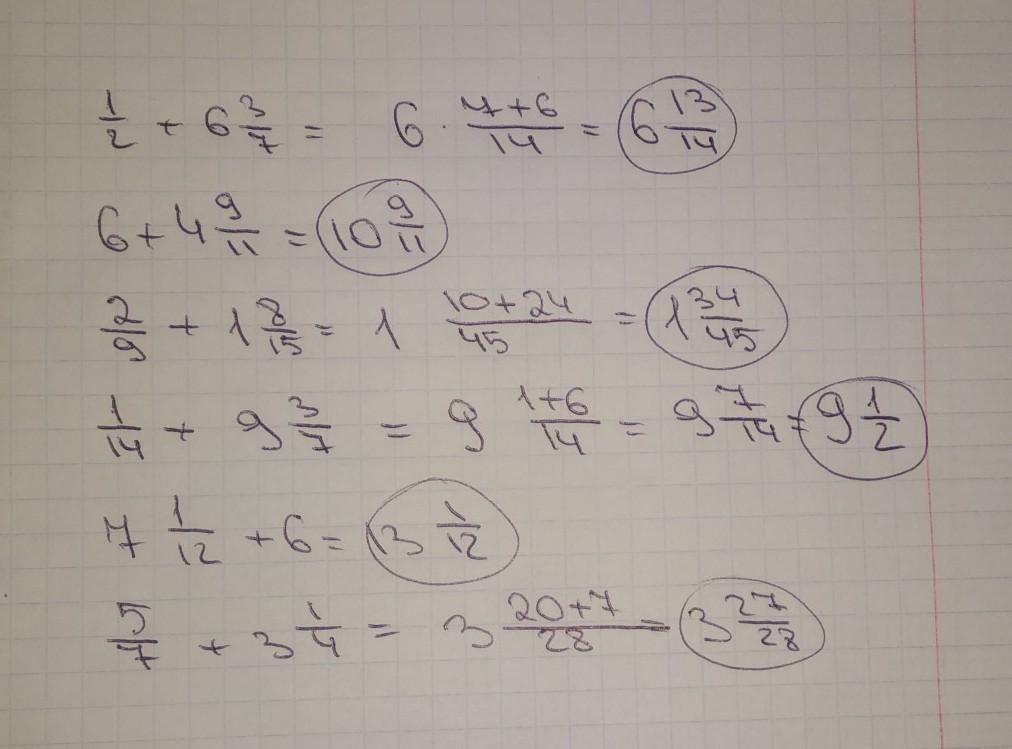 1/2 + 6 3/7 = 6 · (7+6)/14 = 6 13/14
6 + 4 9/11 = 10 9/11
2/9 + 1 8/15 = 1 (10+24)/45 = 1 34/45
1/14 + 9 3/7 = 9 (1+6)/14 = 9 7/14 = 9 1/2
7 1/12 + 6 = 13 1/12
5/7 + 3 1/4 = 3 (20+7)/28 = 3 27/28